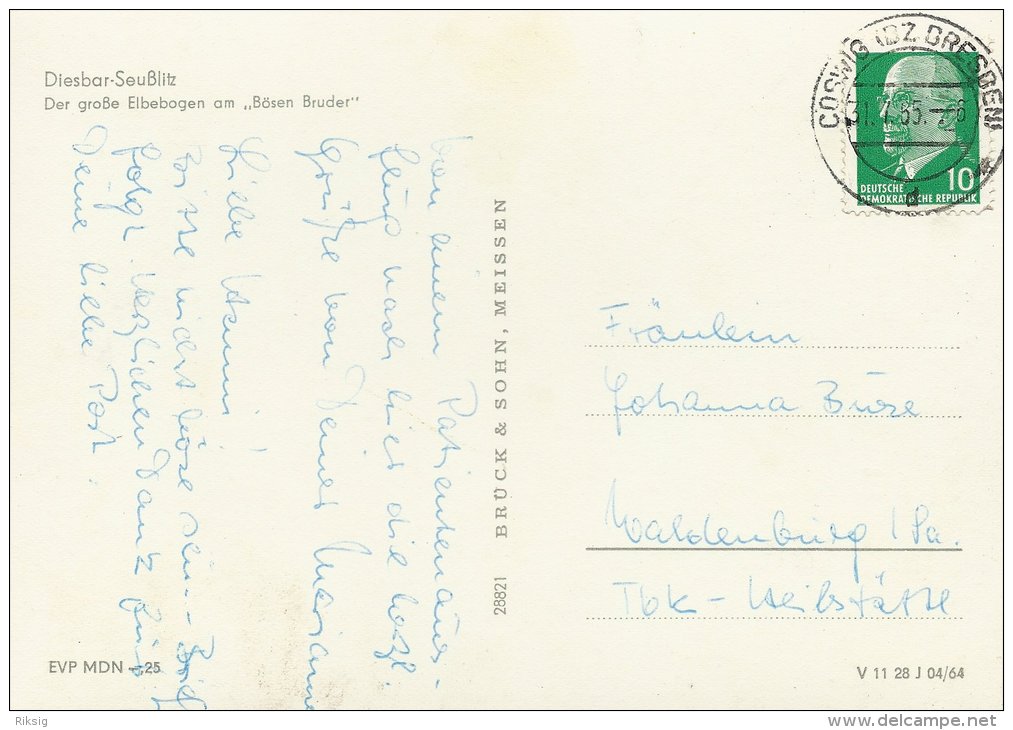 Diesbar-Seußlitz
Der große Elbebogen am „Bösen Bruder"
Von einem Patientenaus-
flug nach hier die herzl.
Grüße von Deiner Marianne
Liebe Hanni!
Bitte nicht böse sein - Brief
folgt. Herzlichen Dank für
Deine liebe Post.
BRÜCK & SOHN, MEISSEN
28821
EVP MDN —.25
COSWIG (BZ DRESDEN)
31.7.65.-8
1
10
DEUTSCHE
DEMOKRATISCHE REPUBLIK
Fräulein
Johanna
Waldenburg / Sa.
Tbk - Heilstätte
V 11 28 J 04/64
Riksig
delcampe.net